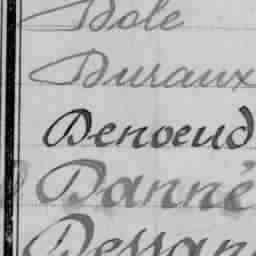 Dole
Duraux
Denoeud
Danné
Dessan